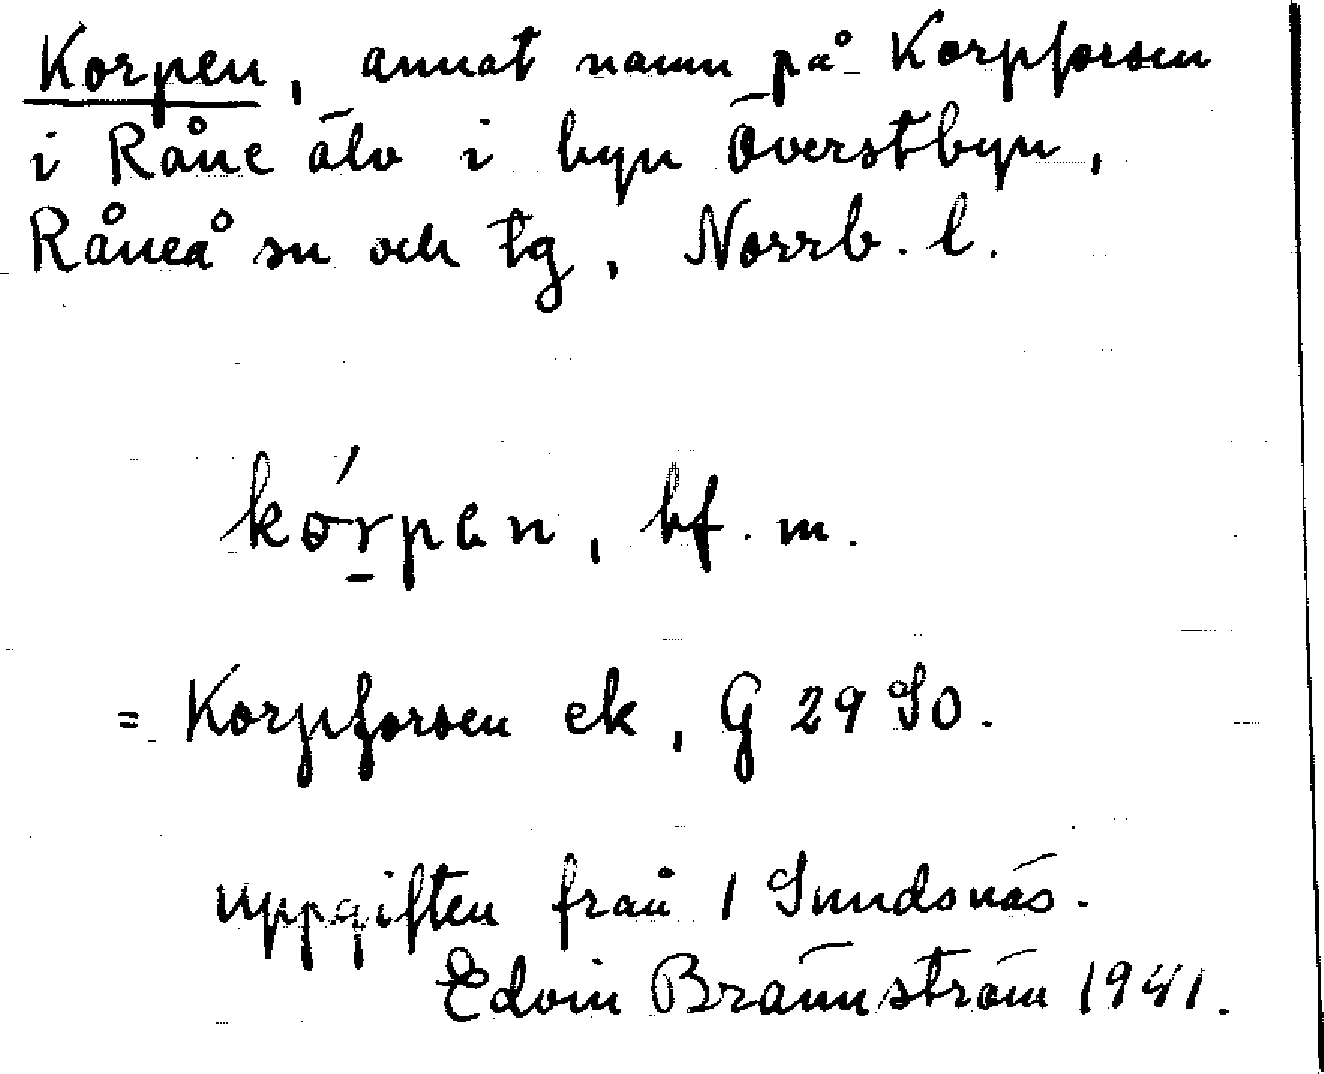 Korpen, annat namn på Korpforsen
i Råne älv i byn Överstbyn,
Råneå sn och tg, Norrb. l.
kórpen, bf. m.
= Korpforsen ek, G 29 SO.
uppgiften från 1 Sundsnäs.
Edvin Brännström 1941.